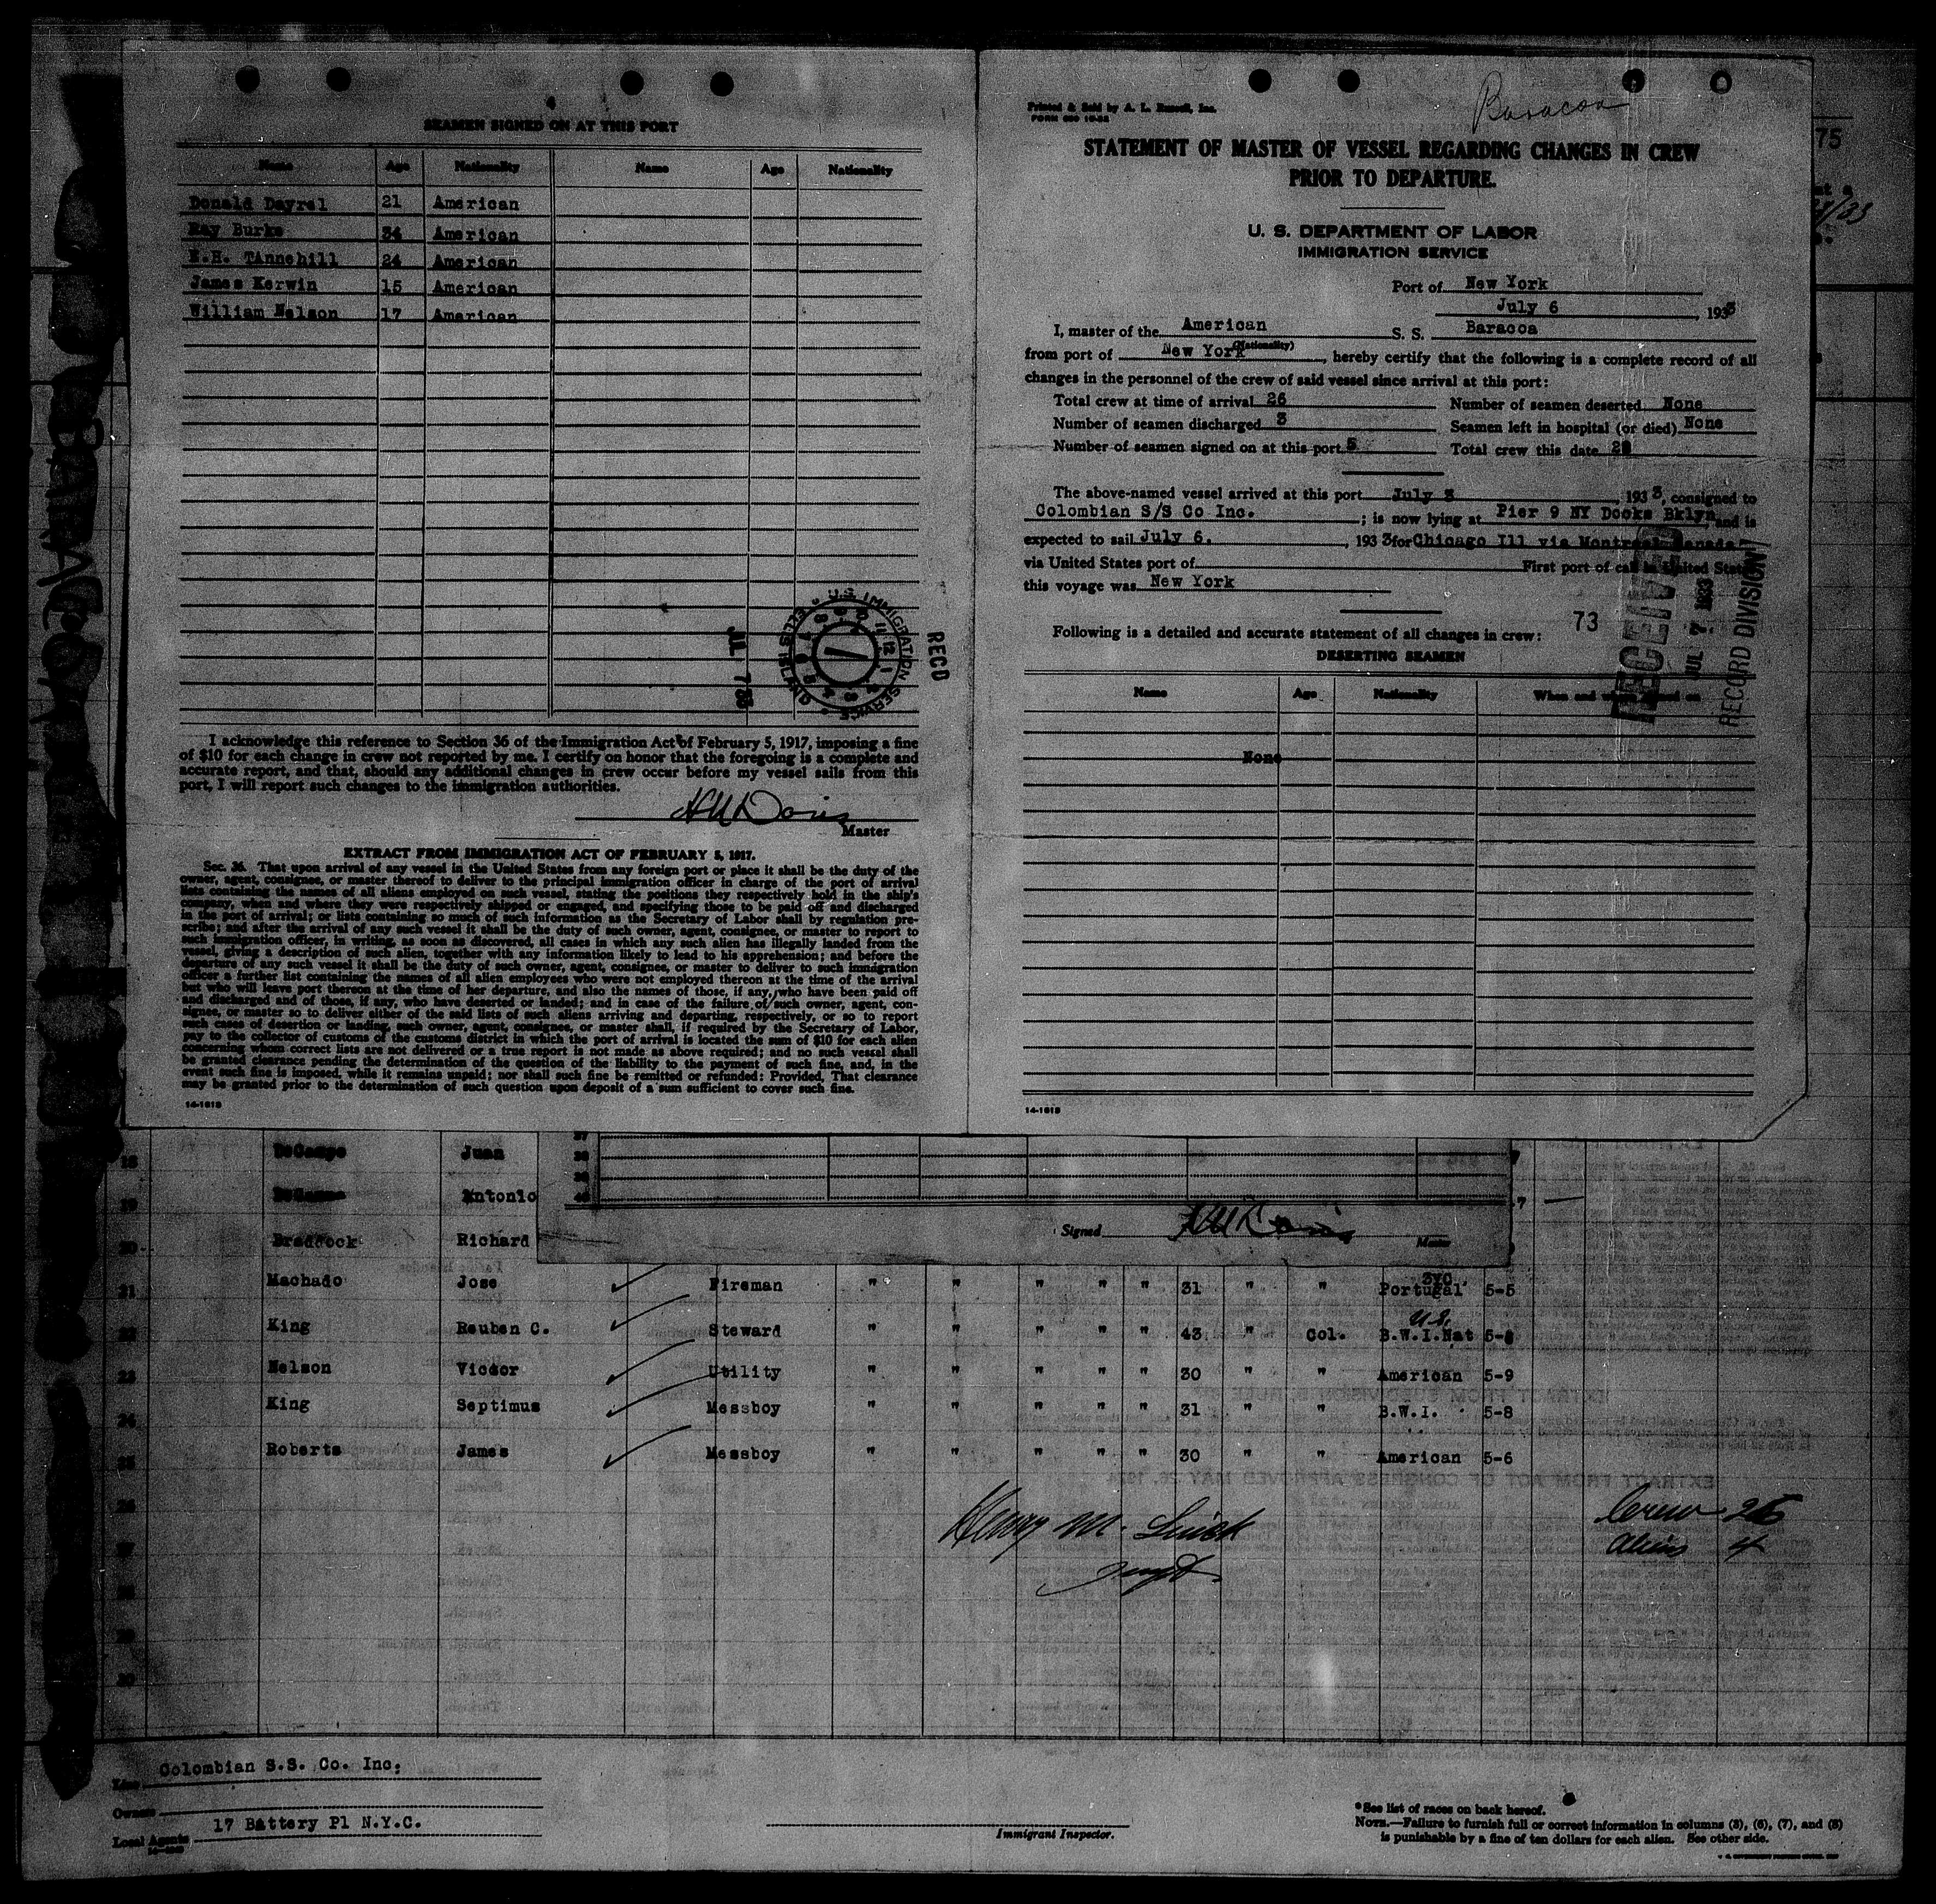 4
SEAMEN SIGNED ON AT THIS PORT
Name Age Nationality Name Age Nationality
Donald Dayrel 21 American
Ray Burke 34 American
TAnnehill 24 American
James Kerwin 15 American
William Nelson 17 American
U.S. IMMIGRATION SERVICE ELLIS ISLAND
RECD
JUL 7 33
I acknowledge this reference to Section 36 of the Immigration Act of February 5, 1917, imposing a fine
of $10 for each change in crew not reported by me. I certify on honor that the foregoing is a complete and
accurate report, and that, should any additional changes in crew occur before my vessel sails from this
port, I will report such changes to the immigration authorities.
Master
EXTRACT FROM IMMIGRATION ACT OF FEBRUARY 5, 1917.
Sec. 36. That upon arrival of any vessel in the United States from any foreign port or place it shall be the duty of the
owner, agent, consignee, or master thereof to deliver to the principal immigration officer in charge of the port of arrival
lists containing the names of all aliens employed on such vessel, stating the positions they respectively hold in the ship's
company, when and where they were respectively shipped or engaged, and specifying those to be paid off and discharged
in the port of arrival; or lists containing so much of such information as the Secretary of Labor shall by regulation pre-
scribe; and after the arrival of any such vessel it shall be the duty of such owner, agent, consignee, or master to report to
such immigration officer, in writing, as soon as discovered, all cases in which any such alien has illegally landed from the
vessel, giving a description of such alien, together with any information likely to lead to his apprehension; and before the
departure of any such vessel it shall be the duty of such owner, agent, consignee, or master to deliver to such immigration
officer a further list containing the names of all alien employees who were not employed thereon at the time of the arrival
but who will leave port thereon at the time of her departure, and also the names of those, if any, who have been paid off
and discharged and of those, if any, who have deserted or landed; and in case of the failure of such owner, agent, con-
signee, or master so to deliver either of the said lists of such aliens arriving and departing, respectively, or so to report
such cases of desertion or landing, such owner, agent, consignee, or master shall, if required by the Secretary of Labor,
pay to the collector of customs of the customs district in which the port of arrival is located the sum of $10 for each alien
concerning whom correct lists are not delivered or a true report is not made as above required; and no such vessel shall
be granted clearance pending the determination of the question of the liability to the payment of such fine, and, in the
event such fine is imposed, while it remains unpaid; nor shall such fine be remitted or refunded: Provided, That clearance
may be granted prior to the determination of such question upon deposit of a sum sufficient to cover such fine.
14-1618
Baracoa
Printed & Sold by A. L. Russell, Inc.
STATEMENT OF MASTER OF VESSEL REGARDING CHANGES IN CREW
PRIOR TO DEPARTURE.
U. S. DEPARTMENT OF LABOR
IMMIGRATION SERVICE
Port of New York
July 6, 1933
I, master of the American S. S. Baracoa
(Nationality)
from port of New York, hereby certify that the following is a complete record of all
changes in the personnel of the crew of said vessel since arrival at this port:
Total crew at time of arrival 26 Number of seamen deserted None
Number of seamen discharged 3 Seamen left in hospital (or died) None
Number of seamen signed on at this port 5 Total crew this date 28
The above-named vessel arrived at this port July 3, 1933, consigned to
Colombian S/S Co Inc. ; is now lying at Pier 9 NY Docks Bklyn and is
expected to sail July 6. , 1933 for Chicago Ill via Montreal Canada
via United States port of First port of call in United States
this voyage was New York
73
RECEIVED
JUL 7 1933
RECORD DIVISION
Following is a detailed and accurate statement of all changes in crew:
DESERTING SEAMEN
Name Age Nationality When and where signed on
None
14-1618
75
BARACOA
18 DeCampo Juan
19 Antonio
20 Braddock Richard
37
38
39
40
Signed
Master
21 Machado Jose Fireman " " " " " 31 " " Portugal 5-5
22 King Reuben C. Steward " " " " " 43 " Col. B.W.I.Nat U.S. 5-8
23 Nelson Victor Utility " " " " " 30 " " American 5-9
24 King Septimus Messboy " " " " " 31 " " B.W.I. 5-8
25 Roberts James Messboy " " " " " 30 " " American 5-6
26
27
28
29
30
Crew 26
Aliens 4
Line Colombian S.S. Co. Inc.
Owners
Local Agents 17 Battery Pl N.Y.C.
Immigrant Inspector.
*See list of races on back hereof.
NOTE.—Failure to furnish full or correct information in columns (3), (6), (7), and (8)
is punishable by a fine of ten dollars for each alien. See other side.